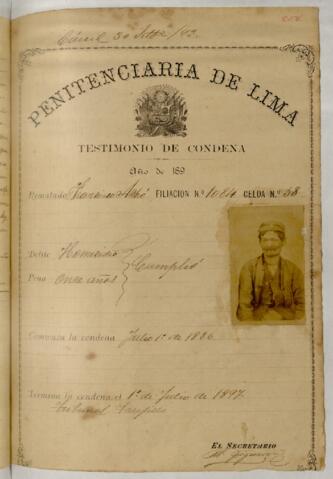 PENITENCIARIA DE LIMA
TESTIMONIO DE CONDENA
Año de 189
Rematado FILIACION N.º 1064 CELDA N.º 38
Delito Homicidio
Pena once años Cumplió
Comienza la condena Julio 1º de 1886
Termina la condena el 1º de Julio de 1897.
Tribunal
EL SECRETARIO